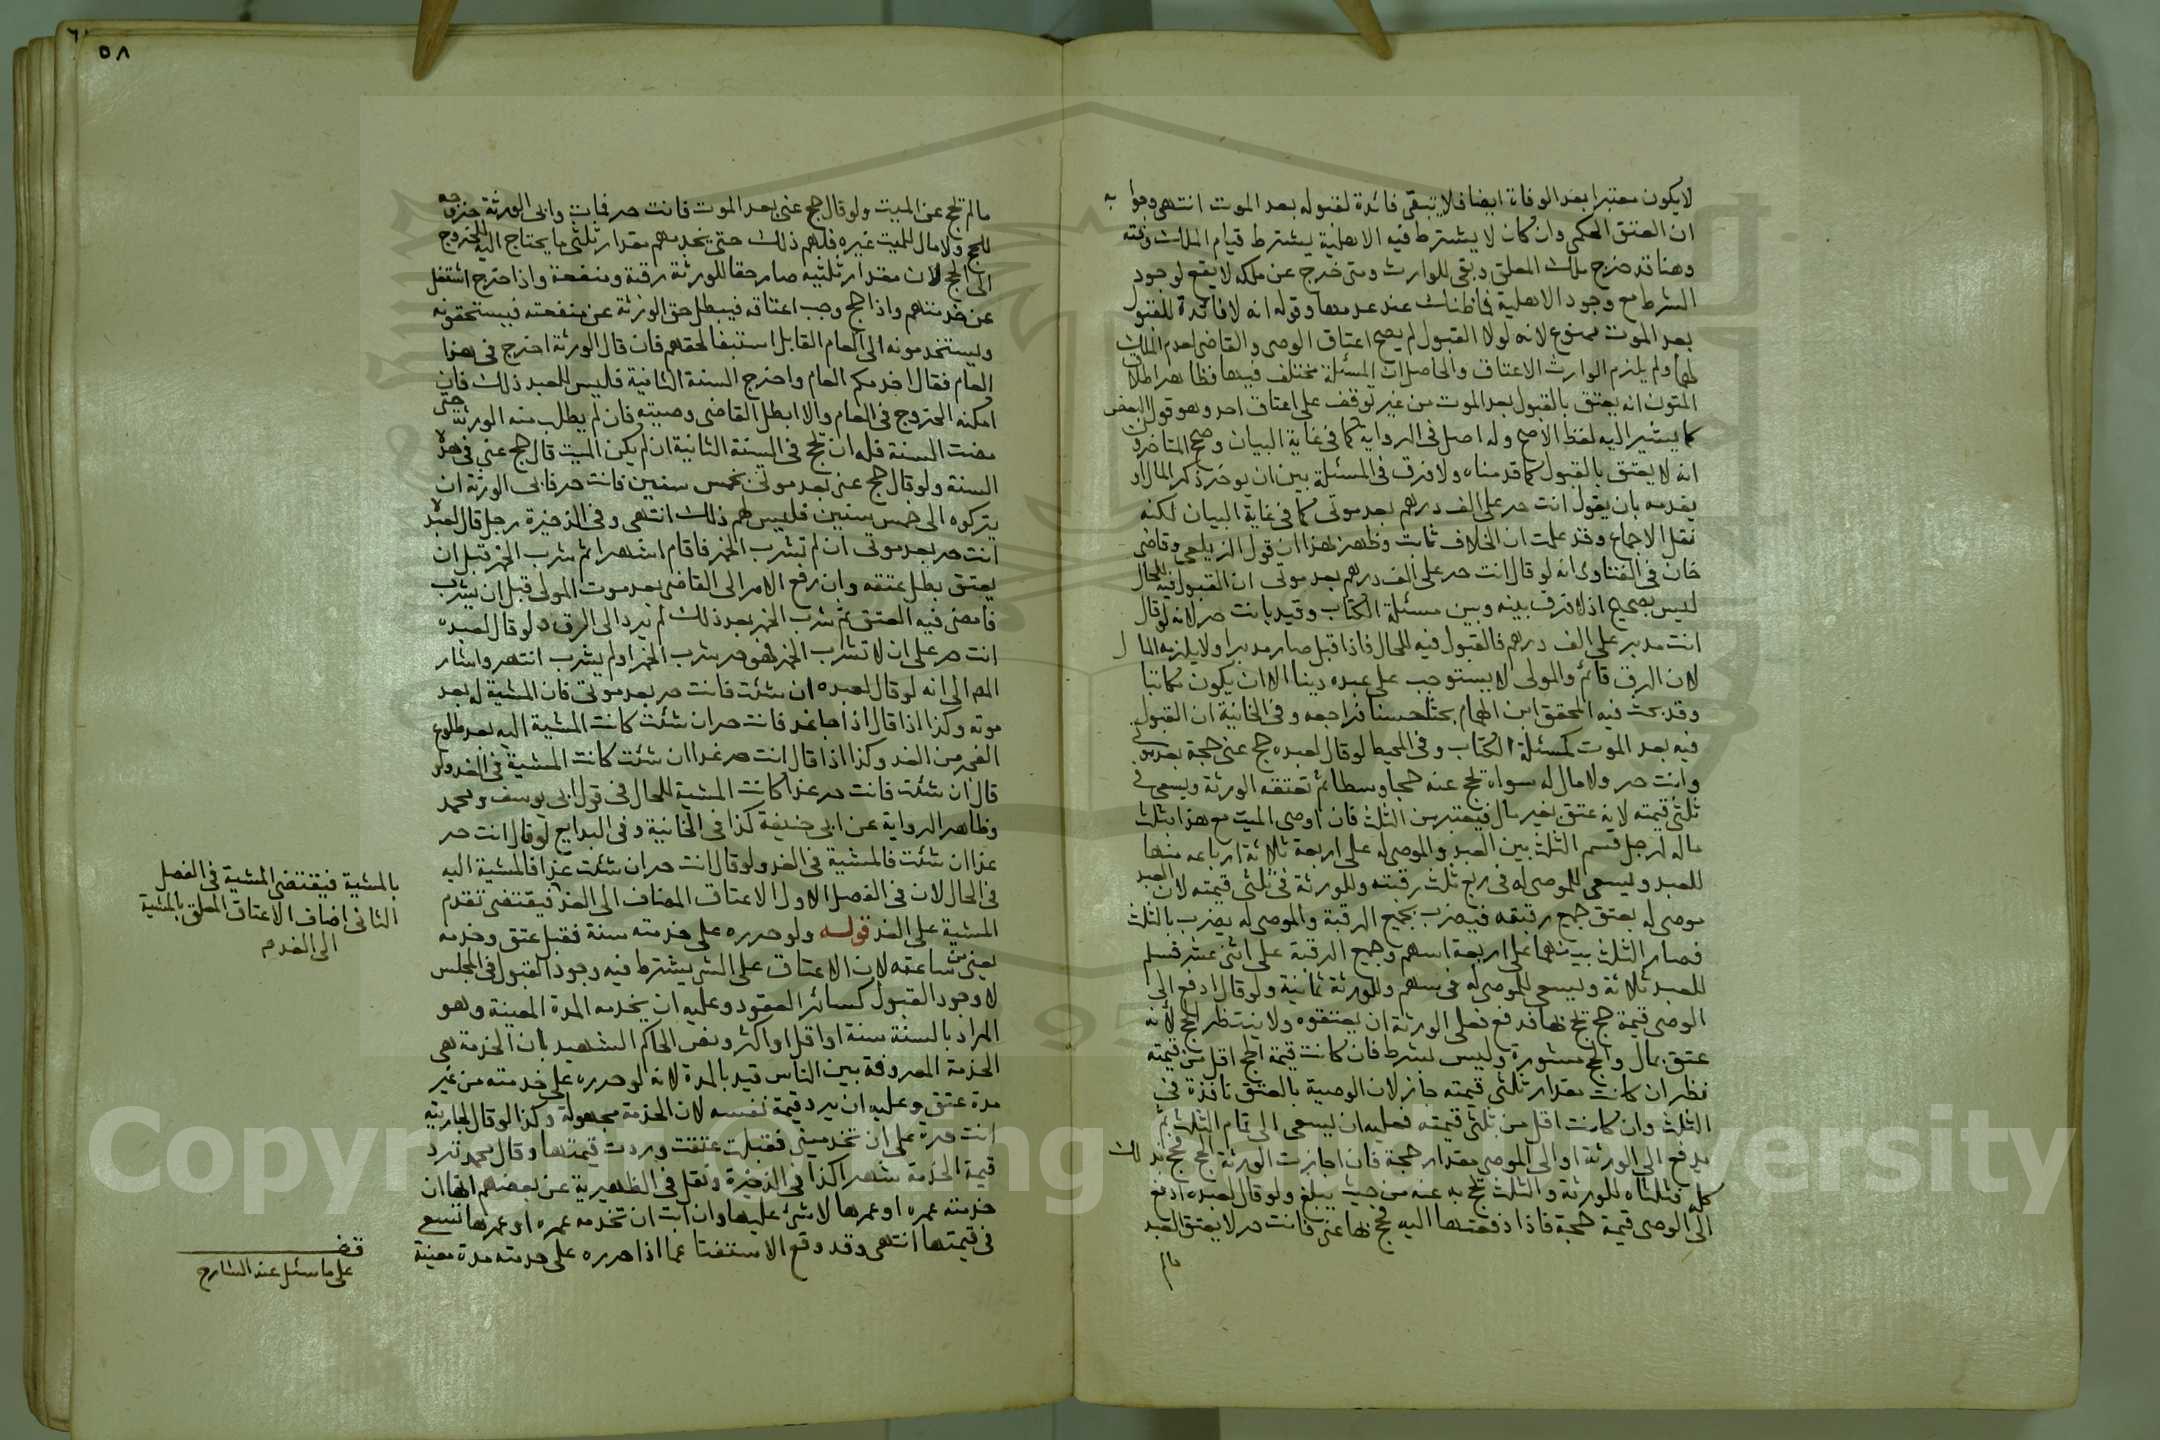 لا يكون معتبرا بعد الوفاة ايضا فلا يتبقى فائدة لقبوله بعد الموت انتهى وجوابه
ان العتق الحكمى وان كان لا يشترط فيه الاهلية يشترط قيام الملك وقته
وهنا قد خرج ملك المعلق وبقى للوارث ومتى خرج عن ملكه لا يقع لوجود
الشرط مع وجود الاهلية فما ظنك عند عدمها وقوله انه لا فائدة للقبول
بعد الموت ممنوع لانه لولا القبول لم يصح اعتاق الوصى والقاضى لعدم الملك
لهما ولم يلزم الوارث الاعتاق والحاصل ان المسئلة مختلف فيها فظاهر اطلاق
المتون انه يعتق بالقبول بعد الموت من غير توقف على اعتاق احد وهو قول البعض
كما يشير اليه لفظ الاصح وله اصل فى الرواية كما فى غاية البيان وصحح المتاخرون
انه لا يعتق بالقبول كما قدمناه ولا فرق فى المسئلة بين ان يوخر ذكر المال او
يقدمه بان يقول انت حر على الف درهم بعد موتى كما فى غاية البيان لكنه
نقل الاجماع وقد علمت ان الخلاف ثابت وظهر بهذا ان قول الزيلعى وقاضى
خان فى الفتاوى انه لو قال انت حر على الف درهم بعد موتى ان القبول فيه للحال
ليس بصحيح اذ لا فرق بينه وبين مسئلة الكتاب وقيد بانت حر لانه لو قال
انت مدبر على الف درهم فالقبول فيه للحال فاذا قبل صار مدبرا ولا يلزمه المال
لان الرق قائم والمولى لا يستوجب على عبده دينا الا ان يكون مكاتبا
وقد بحث فيه المحقق ابن الهمام بحثا حسنا فراجعه وفى الخانية ان القبول
فيه بعد الموت كمسئلة الكتاب وفى المحيط لو قال لعبده حج عنى حجة بعد موتى
وانت حر ولا مال له سواه تحج عنه حجا وسطا ثم تعتقه الورثة ويسعى فى
ثلثى قيمته لانه عتق بغير مال فيعتبر من الثلث فان اوصى الميت مع هذا بثلث
ماله لرجل قسم الثلث بين العبد والموصى له على اربعة ثلاثة ارباعه منها
للعبد ويسعى للموصى له فى ربع ثلث رقبته وللورثة فى ثلثى قيمته لان العبد
موصى له بعتق جميع رقبته فيضرب بجميع الرقبة والموصى له يضرب بالثلث
فصار الثلث بينهما على اربعة اسهم وجميع الرقبة على اثنى عشر فسلم
للعبد ثلاثة ويسعى للموصى له فى سهم وللورثة ثمانية ولو قال ادفع الى
الوصى قيمة حج تحج بها فدفع فعلى الورثة ان يعتقوه ولا ينتظر الحج لانه
عتق بمال والحج مشورة وليس بشرط فان كانت قيمة الحج اقل من قيمته
نظر ان كانت مقدار ثلثى قيمته جاز لان الوصية بالعتق نافذة فى
الثلث وان كانت اقل من ثلثى قيمته فعليه ان يسعى الى تمام الثلث ثم
يدفع الى الورثة او الى الموصى مقدار حجة فان اجازت الورثة الحج فحج بذلك
كله فثلثاه للورثة والثلث تحج به عنه من حيث يبلغ ولو قال لعبده ادفع
الى الوصى قيمة حجة فاذا دفعتها اليه فحج بها عنى فانت حر لا يعتق العبد
مالم
٥٨
مالم تحج عن الميت ولو قال حج عنى بعد الموت فانت حر فمات وابى الورثة خروجه
للحج ولا مال للميت غيره فلهم ذلك حتى يخدمهم مقدار ثلثى ما يحتاج اليه للخروج
الى الحج لان مقدار ثلثيه صار حقا للورثة رقبة ومنفعة واذا خرج اشتغل
عن خدمتهم واذا حج وجب اعتاقه فيبطل حق الورثة عن منفعته فيستحقونه
ويستخدمونه الى العام القابل استبقا لحقهم فان قال الورثة اخرج فى هذا
العام فقال اخدمكم العام واخرج السنة الثانية فليس للعبد ذلك فان
امكنه الخروج فى العام والا ابطل القاضى وصيته فان لم يطلب منه الورثة حتى
مضت السنة فله ان تحج فى السنة الثانية ان لم يكن الميت قال حج عنى فى هذه
السنة ولو قال حج عنى بعد موتى بخمس سنين فانت حر فابى الورثة ان
يتركوه الى خمس سنين فليس لهم ذلك انتهى وفى الذخيرة رجل قال لعبده
انت حر بعد موتى ان لم تشرب الخمر فاقام اشهرا ثم شرب الخمر قبل ان
يعتق بطل عتقه وان رفع الامر الى القاضى بعد موت المولى قبل ان يشرب
فامضى فيه العتق ثم شرب الخمر بعد ذلك لم يرد الى الرق ولو قال لعبده
انت حر على ان لا تشرب الخمر فهو حر شرب الخمر او لم يشرب انتهى واشار
المص الى انه لو قال لعبده ان شئت فانت حر بعد موتى فان المشية له بعد
موته وكذا اذا قال اذا جا غد فانت حر ان شئت كانت المشية اليه بعد طلوع
الفجر من الغد وكذا اذا قال انت حر غدا ان شئت كانت المشية فى الغد ولو
قال ان شئت فانت حر غدا كانت المشية للحال فى قول ابى يوسف ومحمد
وظاهر الرواية عن ابى حنيفة كذا فى الخانية وفى البدايع لو قال انت حر
غدا ان شئت فالمشية فى الغد ولو قال انت حر ان شئت غدا فالمشية اليه
فى الحال لان فى الفصل الاول الاعتاق المضاف الى الغد فيقتضى تقدم
المشية على الغد قوله ولو حرره على خدمته سنة فقبل عتق وخدمه
يعنى من ساعته لان الاعتاق على الشى يشترط فيه وجود القبول فى المجلس
لا وجود القبول كسائر العقود وعليه ان يخدمه المدة المعينة وهو
المراد بالسنة سنة او اقل او اكثر ونص الحاكم الشهيد بان الخدمة هى
الخدمة المعروفة بين الناس قيد بالمدة لانه لو حرره على خدمته من غير
مدة عتق وعليه ان يرد قيمة نفسه لان الخدمة مجهولة وكذا لو قال لجاريته
انت حرة على ان تخدمينى فقبلت عتقت وردت قيمتها وقال محمد ترد
قيمة الخدمة شهرا كذا فى الذخيرة ونقل فى الظهيرية عن بعضهم انها ان
خدمته عمره او عمرها لا شى عليها وان ابت ان تخدمه عمره او عمرها تسع
فى قيمتها انتهى وقد وقع الاستفتا عما اذا حرره على خدمته مدة معينة
بالمشية فيقتضى المشية فى الفصل
الثانى اضاف الاعتاق المعلق بالمشية
الى الغد م
قف
على ما سئل عند الشارح
Copyright © King Saud University